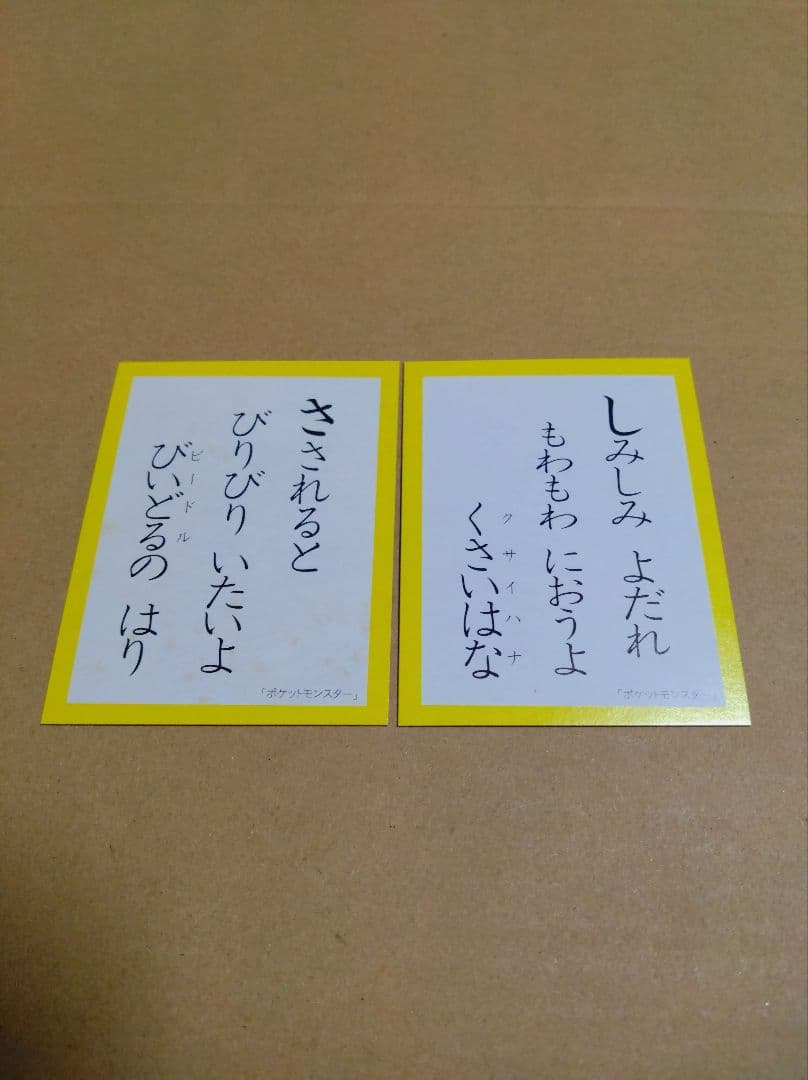 しみしみ よだれ
もわもわ におうよ
くさいはな
クサイハナ
「ポケットモンスター」
さされると
びりびり いたいよ
びいどるの はり
ビードル
「ポケットモンスター」